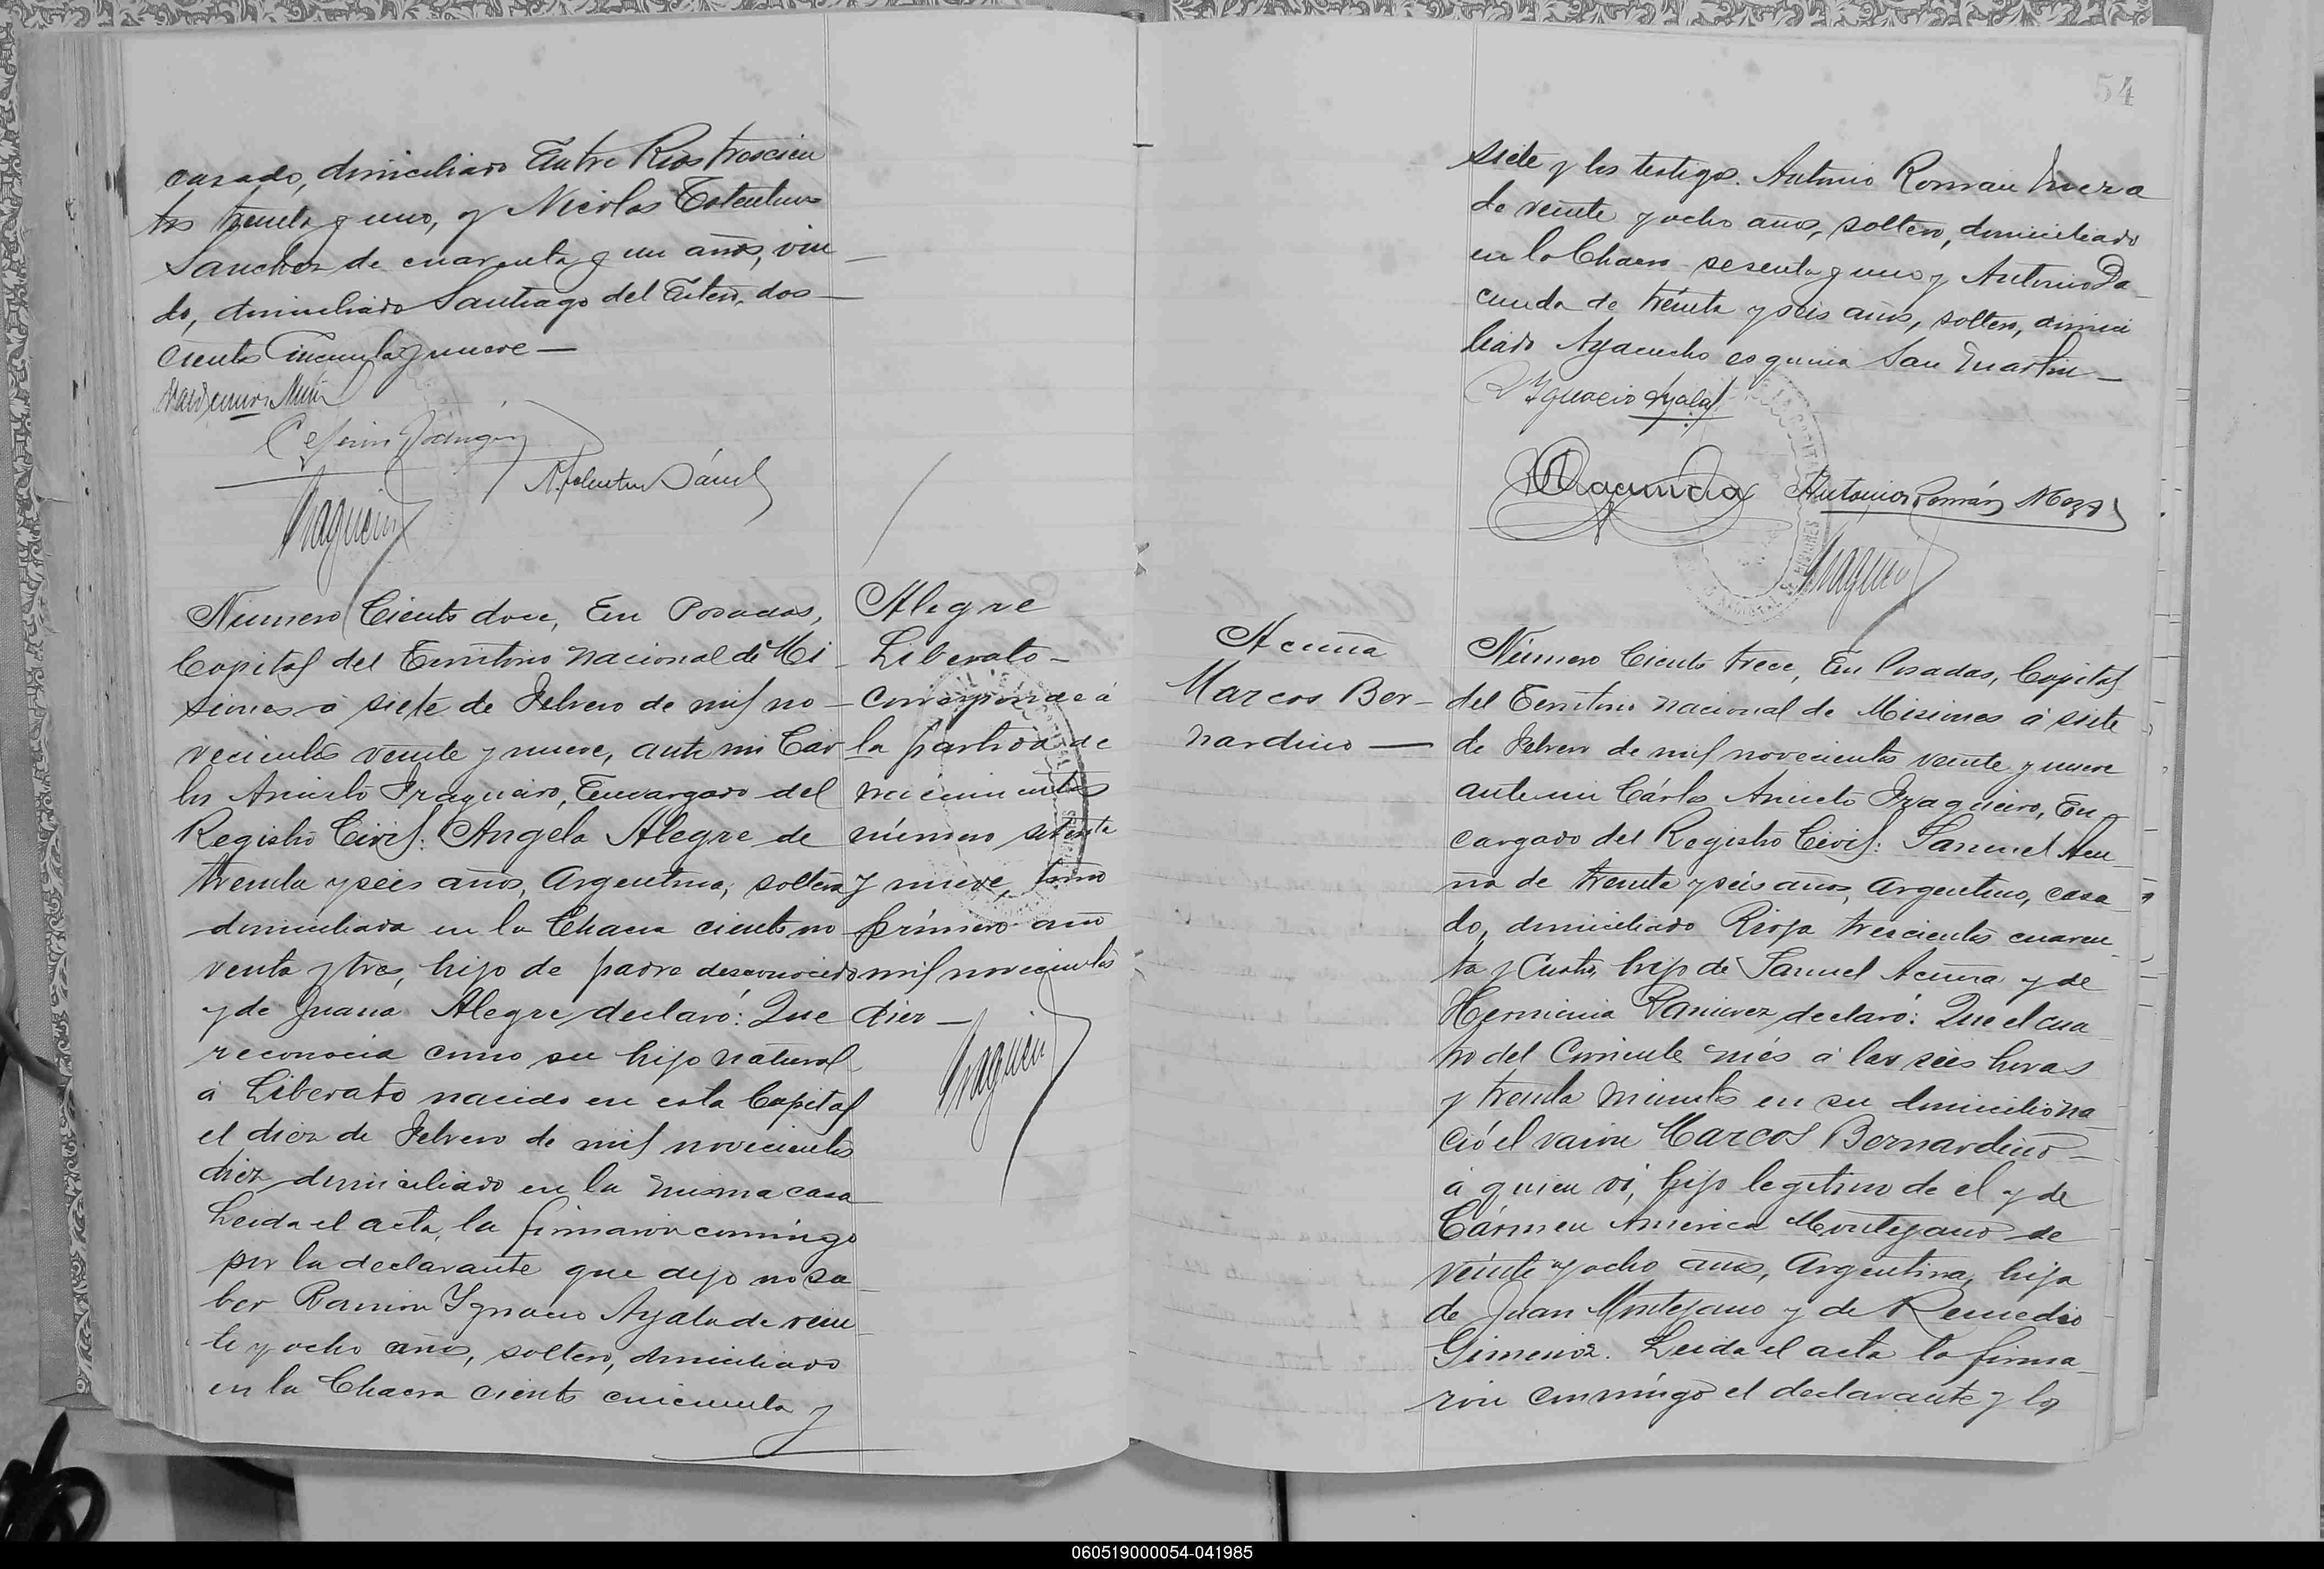 casado, domiciliado Entre Rios trescien
tos treinta y uno, y Nicolas Tolentino
Sanchez de cuarenta y un años, viu
do, domiciliado Santiago del Estero, dos
cientos cincuenta y nueve —
Alegre
Liberato —
Corresponde á
la partida de
nacimientos
número setenta
y nueve, tomo
primero año
mil novecientos
diez —
Número Ciento doce, En Posadas,
Capital del Territorio Nacional de Mi
siones á siete de Febrero de mil no
vecientos veinte y nueve, ante mi Car
los Aniceto Iraqueiro, Encargado del
Registro Civil: Angela Alegre de
treinta y seis años, Argentina, soltera
domiciliada en la Chacra ciento no
venta y tres, hijo de padre desconocido
y de Juana Alegre declaró: Que
reconocia como su hijo natural
á Liberato nacido en esta Capital
el diez de Febrero de mil novecientos
diez domiciliado en la misma casa
Leida el acta, la firmaron conmigo
por la declarante que dijo no sa
ber Ramon Ygnacio Ayala de vein
te y ocho años, soltero, domiciliado
en la Chacra ciento cincuenta y
54
siete y los testigos. Antonio Roman Meza
de veinte y ocho años, soltero, domiciliado
en la Chacra sesenta y uno y Antonio Da
cunda de treinta y seis años, soltero, domici
liado Ayacucho esquina San Martin —
R Ygnacio Ayala
Antonio Román Meza
Acuña
Marcos Ber
nardino —
Número Ciento trece, En Posadas, Capital
del Territorio Nacional de Misiones á siete
de Febrero de mil novecientos veinte y nueve
ante mi Cárlos Aniceto Iraqueiro, En
cargado del Registro Civil: Samuel Acu
ña de treinta y seis años, Argentino, casa
do, domiciliado Rioja trescientos cuaren
ta y Cuatro, hijo de Samuel Acuña y de
Herminia Ramirez declaró: Que el cua
tro del Corriente més á las seis horas
y treinta minutos en su domicilio na
ció el varon Marcos Bernardino —
á quien ví, hijo legitimo de el y de
Cármen America Montejano de
veinte y ocho años, Argentina, hija
de Juan Montejano y de Remedio
Gimenez. Leida el acta la firma
ron conmigo el declarante y los
060519000054-041985